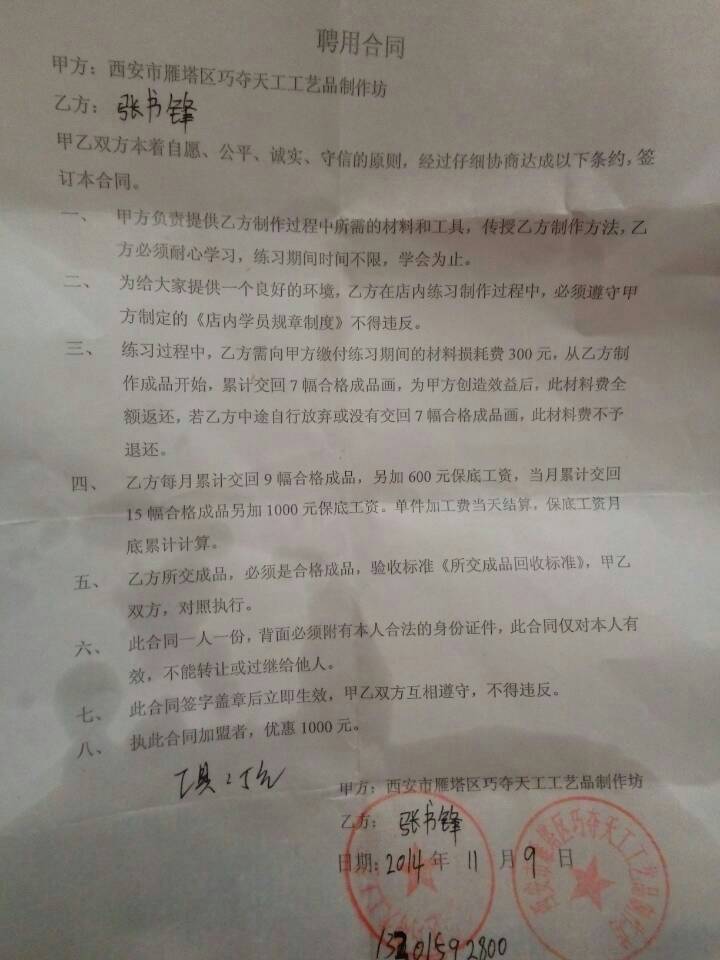 聘用合同
甲方：西安市雁塔区巧夺天工工艺品制作坊
乙方：张书锋
甲乙双方本着自愿、公平、诚实、守信的原则，经过仔细协商达成以下条约，签
订本合同。
一、 甲方负责提供乙方制作过程中所需的材料和工具，传授乙方制作方法，乙
方必须耐心学习，练习期间时间不限，学会为止。
二、 为给大家提供一个良好的环境，乙方在店内练习制作过程中，必须遵守甲
方制定的《店内学员规章制度》不得违反。
三、 练习过程中，乙方需向甲方缴付练习期间的材料损耗费300元，从乙方制
作成品开始，累计交回7幅合格成品画，为甲方创造效益后，此材料费全
额返还，若乙方中途自行放弃或没有交回7幅合格成品画，此材料费不予
退还。
四、 乙方每月累计交回9幅合格成品，另加600元保底工资，当月累计交回
15幅合格成品另加1000元保底工资。单件加工费当天结算，保底工资月
底累计计算。
五、 乙方所交成品，必须是合格成品，验收标准《所交成品回收标准》，甲乙
双方，对照执行。
六、 此合同一人一份，背面必须附有本人合法的身份证件，此合同仅对本人有
效，不能转让或过继给他人。
七、 此合同签字盖章后立即生效，甲乙双方互相遵守，不得违反。
八、 执此合同加盟者，优惠1000元。
甲方：西安市雁塔区巧夺天工工艺品制作坊
乙方：张书锋
日期：2014年11月9日
西安市雁塔区巧夺天工工艺品制作坊